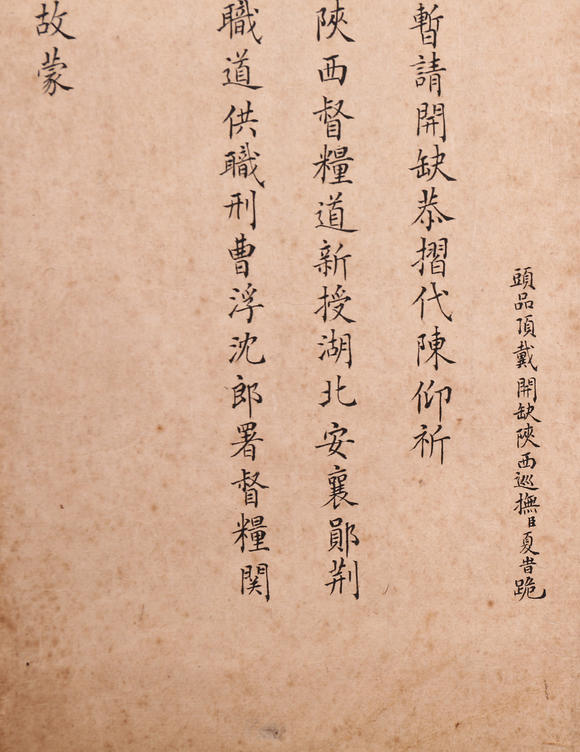 頭品頂戴開缺陝西巡撫臣夏旹跪
暫請開缺恭摺代陳仰祈
陝西督糧道新授湖北安襄鄖荆
職道供職刑曹浮沈郎署督糧関
故蒙